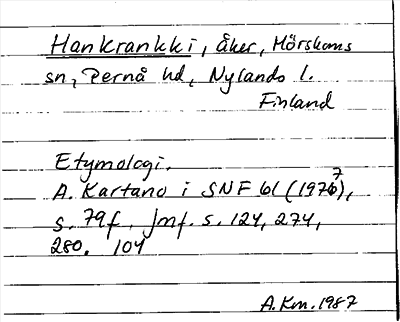 Hankrankki, åker, Mörskoms
sn, Pernå hd, Nylands l.
Finland
Etymologi.
A. Kartano i SNF 61 (1976)7,
s. 79f. Jmf. s. 124, 274,
280. 104
A.Km. 1987